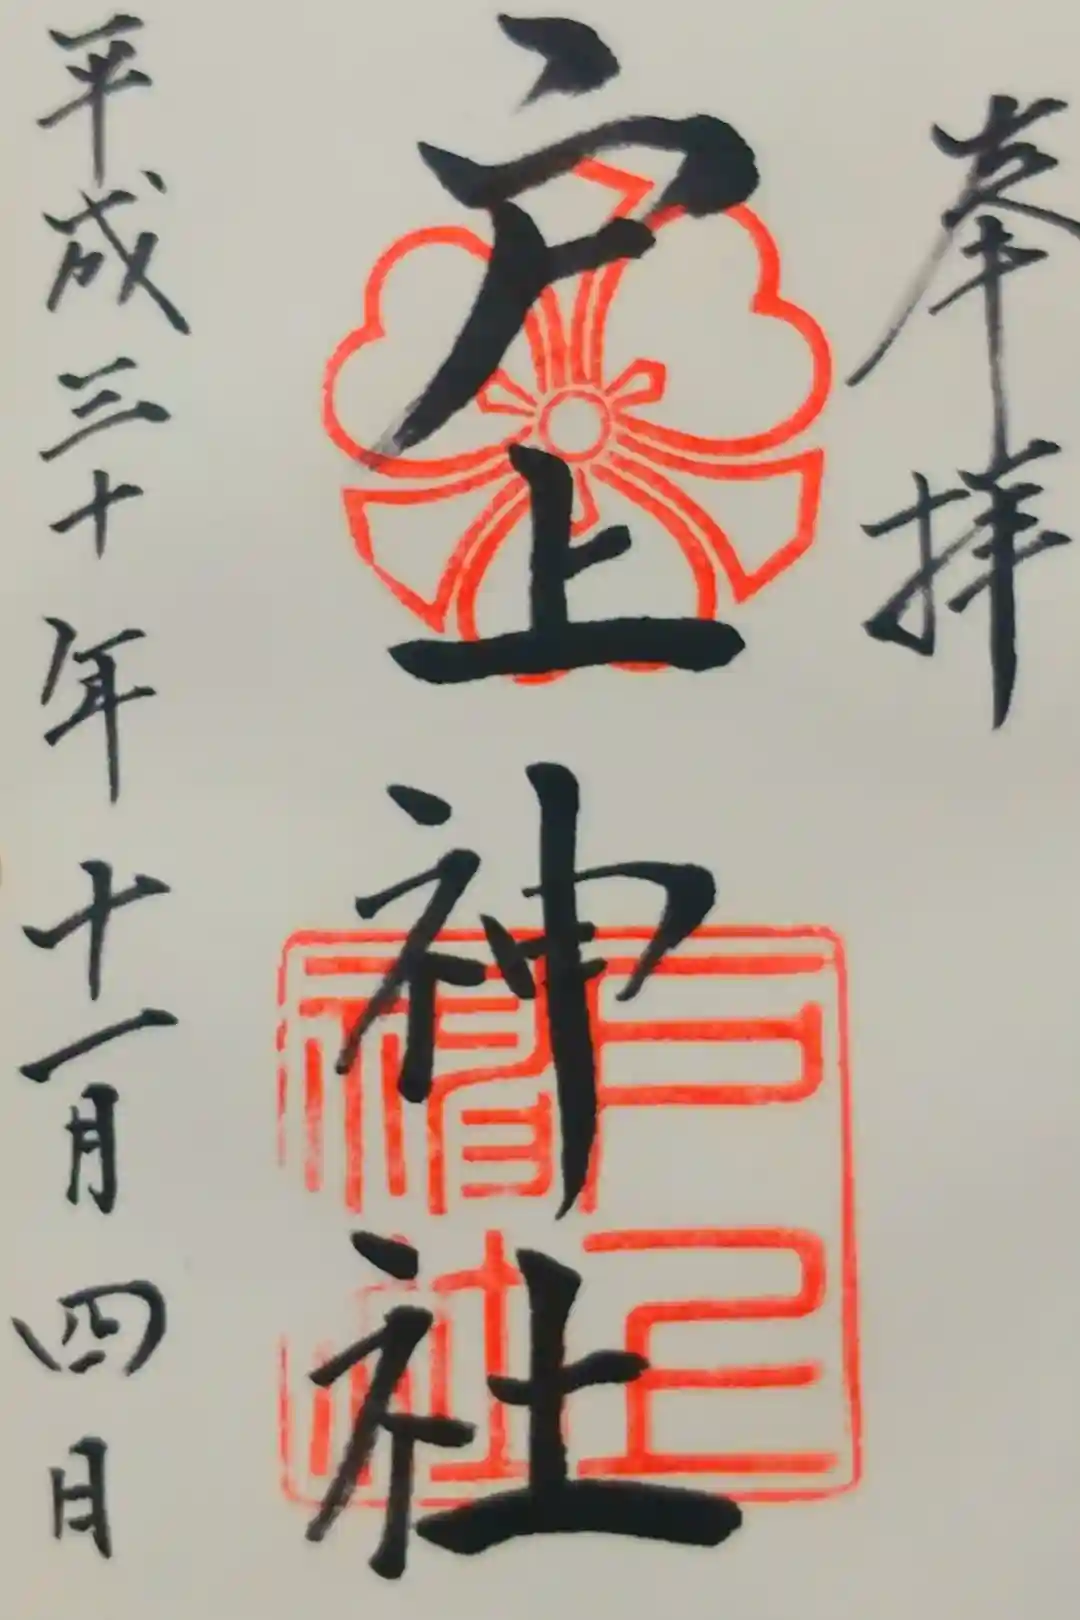 奉拝
戸上神社
戸上
神社
平成三十年十一月四日